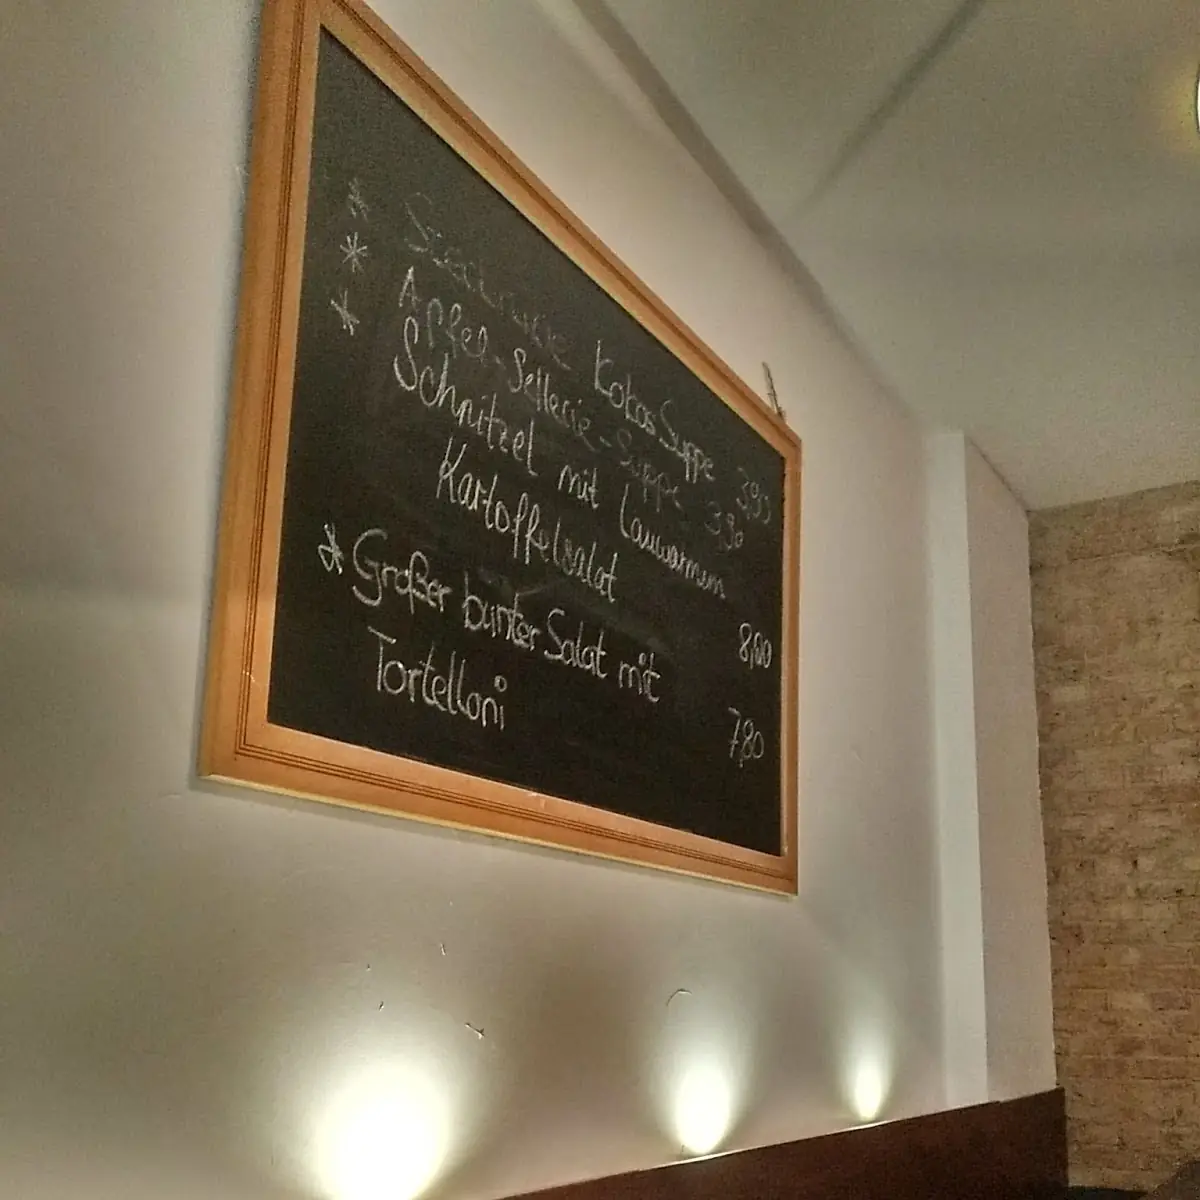 * Kokos Suppe 3,90
* Apfel-Sellerie-Suppe 3,80
* Schnitzel mit lauwarmem
Kartoffelsalat 8,00
* Großer bunter Salat mit
Tortelloni 7,80